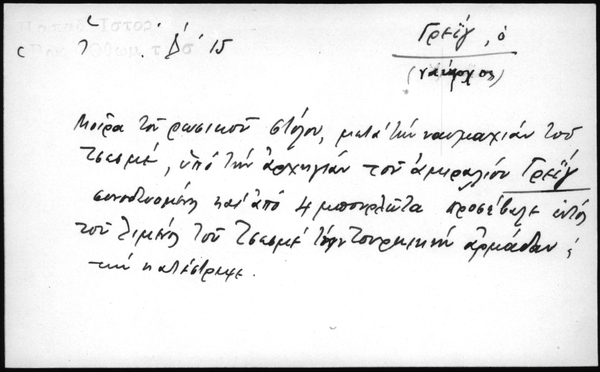 Γρέιγ, ὁ
(ναύαρχος)
Δ' 15
Μοῖρα τοῦ ρωσικοῦ στόλου, μετὰ τὴν ναυμαχίαν τοῦ
Τσεσμέ, ὑπὸ τὴν ἀρχηγίαν τοῦ ἀμιραλίου Γρέιγ
συνοδευομένη καὶ ἀπὸ 4 μπουρλότα προσέβαλε ἐντὸς
τοῦ λιμένος τοῦ Τσεσμέ τὴν τουρκικὴν ἀρμάδαν
τὴν κατέστρεψε.